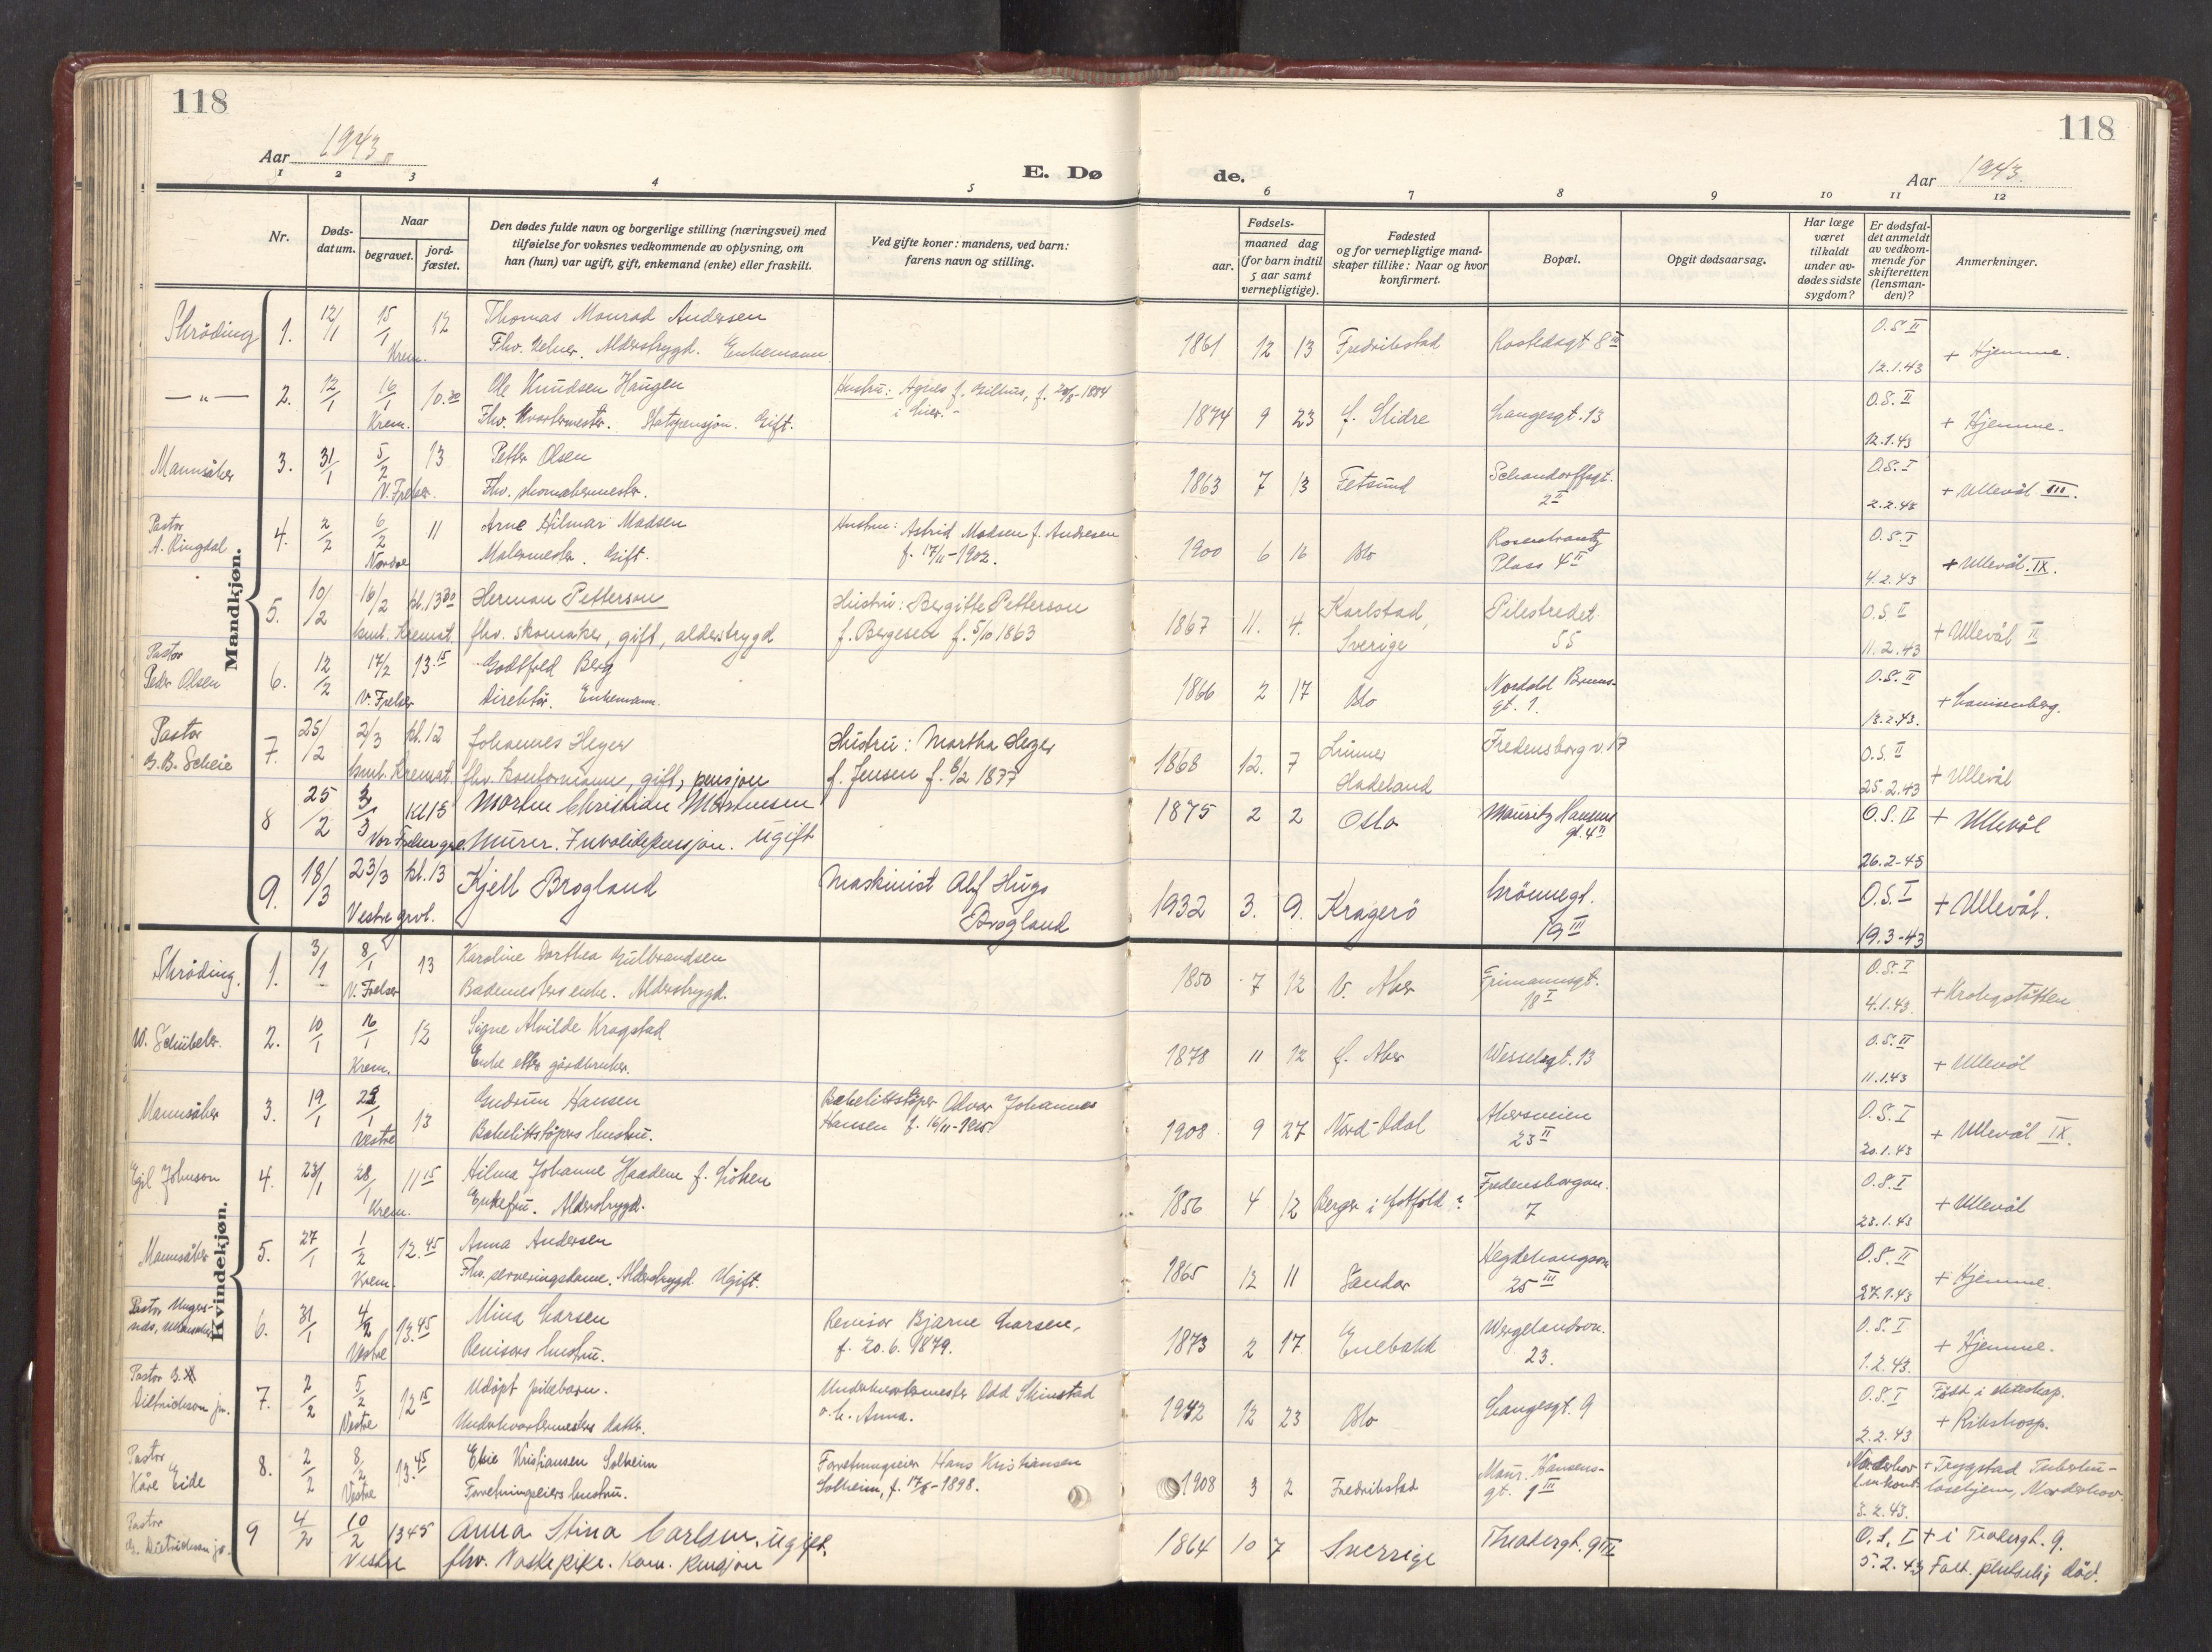 118
118
Aar 1943
Aar 1943.
E. Dø de.
1 2 3 4 5 6 7 8 9 10 11 12
Nr.
Døds-
datum.
Naar
begravet.
jord-
fæstet.
Den dødes fulde navn og borgerlige stilling (næringsvei) med
tilføielse for voksnes vedkommende av oplysning, om
han (hun) var ugift, gift, enkemand (enke) eller fraskilt.
Ved gifte koner: mandens, ved barn:
farens navn og stilling.
Fødsels-
aar.
maaned dag
(for barn indtil
5 aar samt
vernepligtige).
Fødested
og for vernepligtige mand-
skaper tillike: Naar og hvor
konfirmert.
Bopæl.
Opgit dødsaarsag.
Har læge
været
tilkaldt
under av-
dødes sidste
sygdom?
Er dødsfal-
det anmeldt
av vedkom-
mende for
skifteretten
(lensman-
den)?
Anmerkninger.
Mandkjøn.
Skröding 1. 12/1 15/1 12 Thomas Monrad Andersen 1861 12 13 Fredrikstad Rostedsgt 8 III O.S. II + Hjemme.
Krem. Fhv. kelner. Alderstrygd. Enkemann 12.1.43
— " — 2. 12/1 16/1 10.30 Ole Knudsen Haugen Hustru: Agnes f. Gilhus, f. 1884 1874 9 23 f. Slidre Langesgt. 13 O.S. II + Hjemme.
Krem. Fhv. Kvartermester. Statspensjon. Gift. i Lier. - 12.1.43
Mannsåker 3. 31/1 5/2 13 Petter Olsen 1863 7 13 Fetsund Schandorffsgt. O.S. I + Ullevål III.
V. Frelser. Fhv. skomakermester. 2 II 2.2.43
Pastor 4. 2/2 6/2 11 Arne Hilmar Madsen Hustru: Astrid Madsen f. Andresen 1900 6 16 Oslo Rosenkrantz O.S. I + Ullevål. IX.
A. Ringdal Nordre Malermester. Gift. f. 17/11-1902. Plass 4 II 4.2.43
5. 10/2 16/2 kl. 13 30 Herman Petterson Hustru: Bergitte Petterson 1867 11. 4. Karlstad, Pilestredet O.S. II + Ullevål II
Kremat. fhv. skomaker, gift, alderstrygd f. Bergesen f. 5/10 1863 Sverige 55 11.2.43
Pastor 6. 12/2 17/2 13.15 Godtfred Berg 1866 2 17 Oslo Nordahl Bruns- O.S. II + Lovisenberg.
Peder Olsen V. Frelser Direktör. Enkemann. gt. 1. 13.2.43.
Pastor 7. 25/2 2/3 kl. 12 Johannes Heyer Hustru: Martha Heyer 1868 12. 7 Lunner Fredensborg v. 17 O.S. II + Ullevål
G. B. Scheie Kremat. fhv. kontormann, gift, pensjon f. Jensen f. 6/2 1877 Hadeland 25.2.43
8 25/2 3/3 Kl 13 Morten Christian Mortensen 1875 2 2 Oslo Mauritz Hansens O.S. II + Ullevål
Vor Frelsers Murer. Invalidepensjon. Ugift gt. 4 II 26.2-43
9. 18/3 23/3 kl. 13 Kjell Brogland Maskinist Alf Hugo 1932 3. 9. Kragerö Grönnegt. O.S. I + Ullevål.
Vestre gravl. Brogland 19 III 19.3-43
Kvindekjøn.
Skröding. 1. 3/1 8/1 13 Karoline Dorthea Gulbrandsen 1850 7 12 V. Aker Frimannsgt. O.S. I + Krohgstötten
V. Frelser Bademesters enke. Alderstrygd. 18 I 4.1.43.
W. Schübeler. 2. 10/1 16/1 12 Signe Alvilde Krogstad 1878 11 12 f. Aker Wesselsgt. 13 O.S. II + Ullevål
Krem. Enke etter gårdbruker. 11.1.43
Mannsåker 3. 19/1 /1 13 Gudrun Hansen Bakelittstöper Alvar Johannes 1908 9 27 Nord-Odal Akersveien O.S. I + Ullevål IX.
Vestre Bakelittstöpers hustru. Hansen f. 16/11-1905 23 II 20.1.43
Egil Johnson 4. 23/1 28/1 11 15 Hilma Johanne Haadem f. Löken 1856 4 12 Berger i Østfold? Fredensborgvn. O.S. I + Ullevål
Krem. Enkefru. Alderstrygd. 7 23.1.43
Mannsåker 5. 27/1 1/2 12.45 Anna Andersen 1865 12 11 Sandar Hegdehaugsvn O.S. II + Hjemme.
Krem. Fhv. serveringsdame. Alderstrygd Ugift. 25 III 27.1.43
Pastor 6. 31/1 4/2 13.45 Mina Larsen Revisor Bjarne Larsen, 1873 2 17 Enebakk Wergelandsvn. O.S. I + Hjemme.
Vestre Revisors hustru. f. 20.6.1879. 23. 1.2.43.
Pastor 7. 2/2 5/2 12 15 Udöpt pikebarn. Underkvartermester Odd Skinstad 1942 12 23 Oslo Langesgt. 9 O.S. I Född i ekteskap.
Dietrichson jr. Vestre Underkvartermesters datter. o. h. Anna. 2.2.43 + Rikshosp.
Pastor 8. 2/2 8/2 13.45 Elsie Kristiansen Solheim Forretningseier Hans Kristiansen 1908 3 2 Fredrikstad Maur. Hansens- Norderhov + Trygstad Tuberku-
Kåre Eide Vestre Forretningseiers hustru. Solheim, f. -1898. gt. 9 III 3.2.43. losehjem, Norderhov.
Pastor 9 4/2 10/2 13 45 Anna Stina Carlson, ugift. 1864 10 7 Sverrige Theatergt. 9 III O.S. I + i Teatergt. 9.
Dietrichson jr. Vestre fhv. Vaskepike. Kom. pensjon 5.2.43 Falt plutselig död.